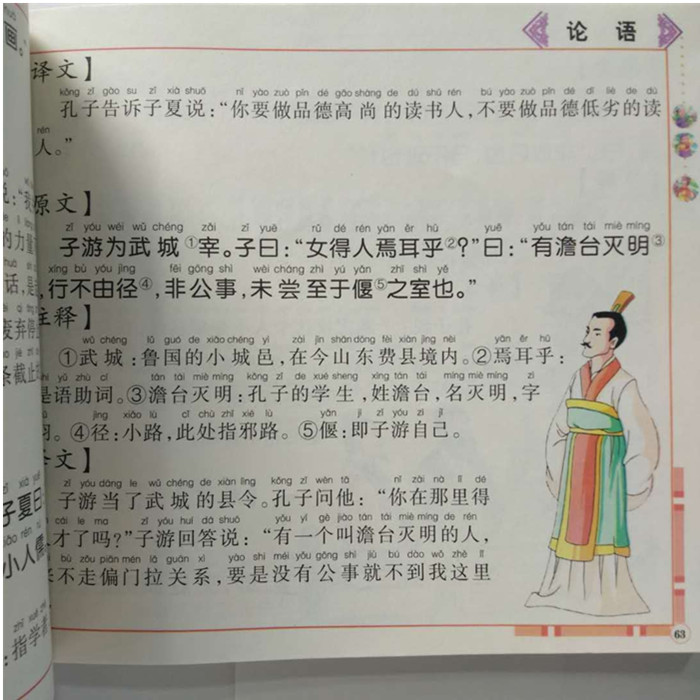 论 语
译文】
kǒng zǐ gào su zǐ xià shuō nǐ yào zuò pǐn dé gāo shàng de dú shū rén bú yào zuò pǐn dé dī liè de dú
孔子告诉子夏说：“你要做品德高尚的读书人，不要做品德低劣的读
rén
人。”
原文】
zǐ yóu wéi wǔ chéng zǎi zǐ yuē rǔ dé rén yān ěr hū yuē yǒu tán tái miè míng
子游为武城①宰。子曰：“女得人焉耳乎②？”曰：“有澹台灭明③
xíng bù yóu jìng fēi gōng shì wèi cháng zhì yú yǎn zhī shì yě
，行不由径④，非公事，未尝至于偃⑤之室也。”
注释】
wǔ chéng lǔ guó de xiǎo chéng yì zài jīn shān dōng fèi xiàn jìng nèi yān ěr hū
①武城：鲁国的小城邑，在今山东费县境内。②焉耳乎：
shì yǔ zhù cí tán tái miè míng kǒng zǐ de xué sheng xìng tán tái míng miè míng zì
是语助词。③澹台灭明：孔子的学生，姓澹台，名灭明，字
yǔ jìng xiǎo lù cǐ chù zhǐ xié lù yǎn jí zǐ yóu zì jǐ
羽。④径：小路，此处指邪路。⑤偃：即子游自己。
译文】
zǐ yóu dāng le wǔ chéng de xiàn lìng kǒng zǐ wèn tā nǐ zài nà lǐ dé
子游当了武城的县令。孔子问他：“你在那里得
cái le ma zǐ yóu huí dá shuō yǒu yí gè jiào tán tái miè míng de rén
人才了吗？”子游回答说：“有一个叫澹台灭明的人，
bù zǒu piān mén lā guān xì yào shi méi yǒu gōng shì jiù bú dào wǒ zhè lǐ
来不走偏门拉关系，要是没有公事就不到我这里
63
画。
说：“我
的力量
话，是
废弃停
条截止
子夏曰
小人儒
：指学